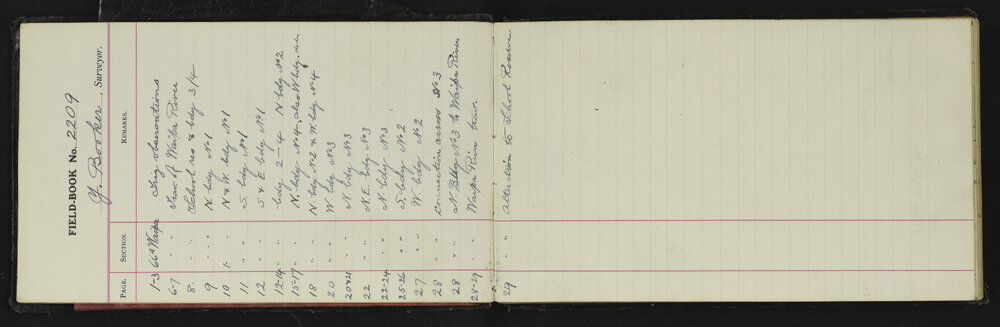 FIELD-BOOK No. 2209
Y. Booker, Surveyor.
PAGE. SECTION. REMARKS.
1-3 66A Waipa Trig observations
6-7 " " Trav. of Waipa River
8 " " School res & bdy 3/4
9 " " N bdy No 1
10 " N & W. bdy No 1
11 " " S. bdy No 1
12 " " S & E bdy No 1
12-14 " " bdy 2-4 N bdy No 2
15-17 " " N. bdy No 4, also W bdy
18 " " N bdy No 2 & W. bdy No 4
20 " " W. bdy No 3
20 & 21 " " N bdy No 3
22 " " N.E. bdy No 3
22-24 " " N. bdy No 3
25-26 " " S. bdy No 2
27 " " W. bdy No 2
28 " " Connection across No 3
28 " " N. Bdy No 3 to Waipa River
28-29 " " Waipa River trav.
29 " " Alteration to School Reserve